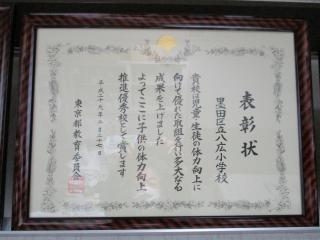 表彰状
墨田区立八広小学校
貴校は児童・生徒の体力向上に
向けて優れた取組を行い多大なる
成果を上げました
よってここに子供の体力向上
推進優秀校として賞します
平成二十九年二月二十七日
東京都教育委員会